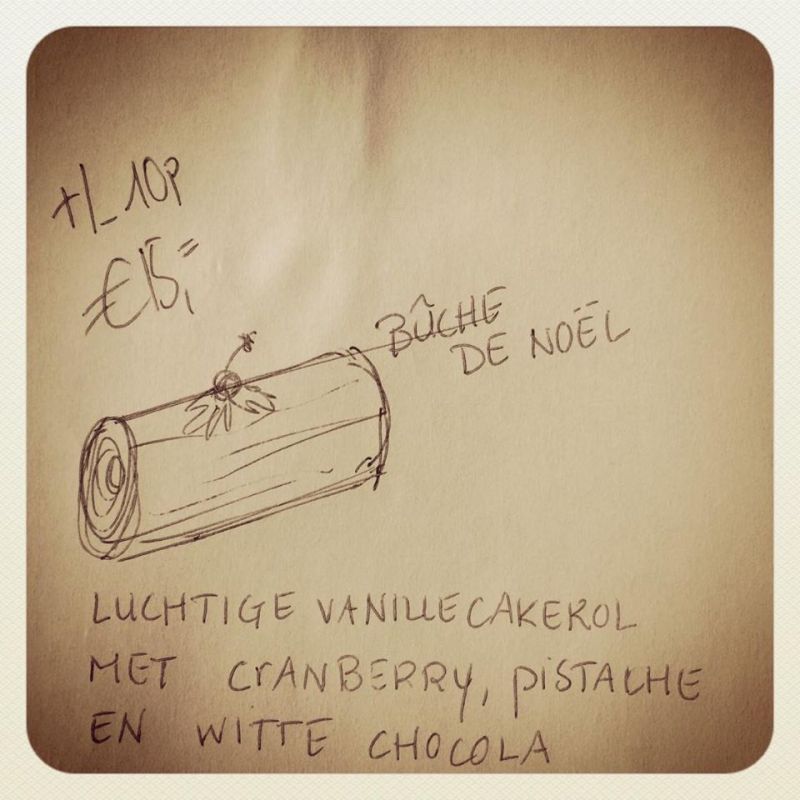 +/- 10p
€15,=
BÛCHE
DE NOËL
LUCHTIGE VANILLECAKEROL
MET CRANBERRY, PISTACHE
EN WITTE CHOCOLA